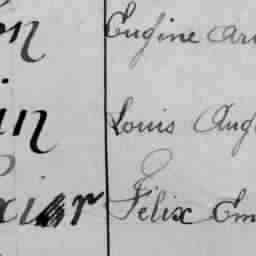 on Eugène Ar
in Louis Aug
xier Félix Em